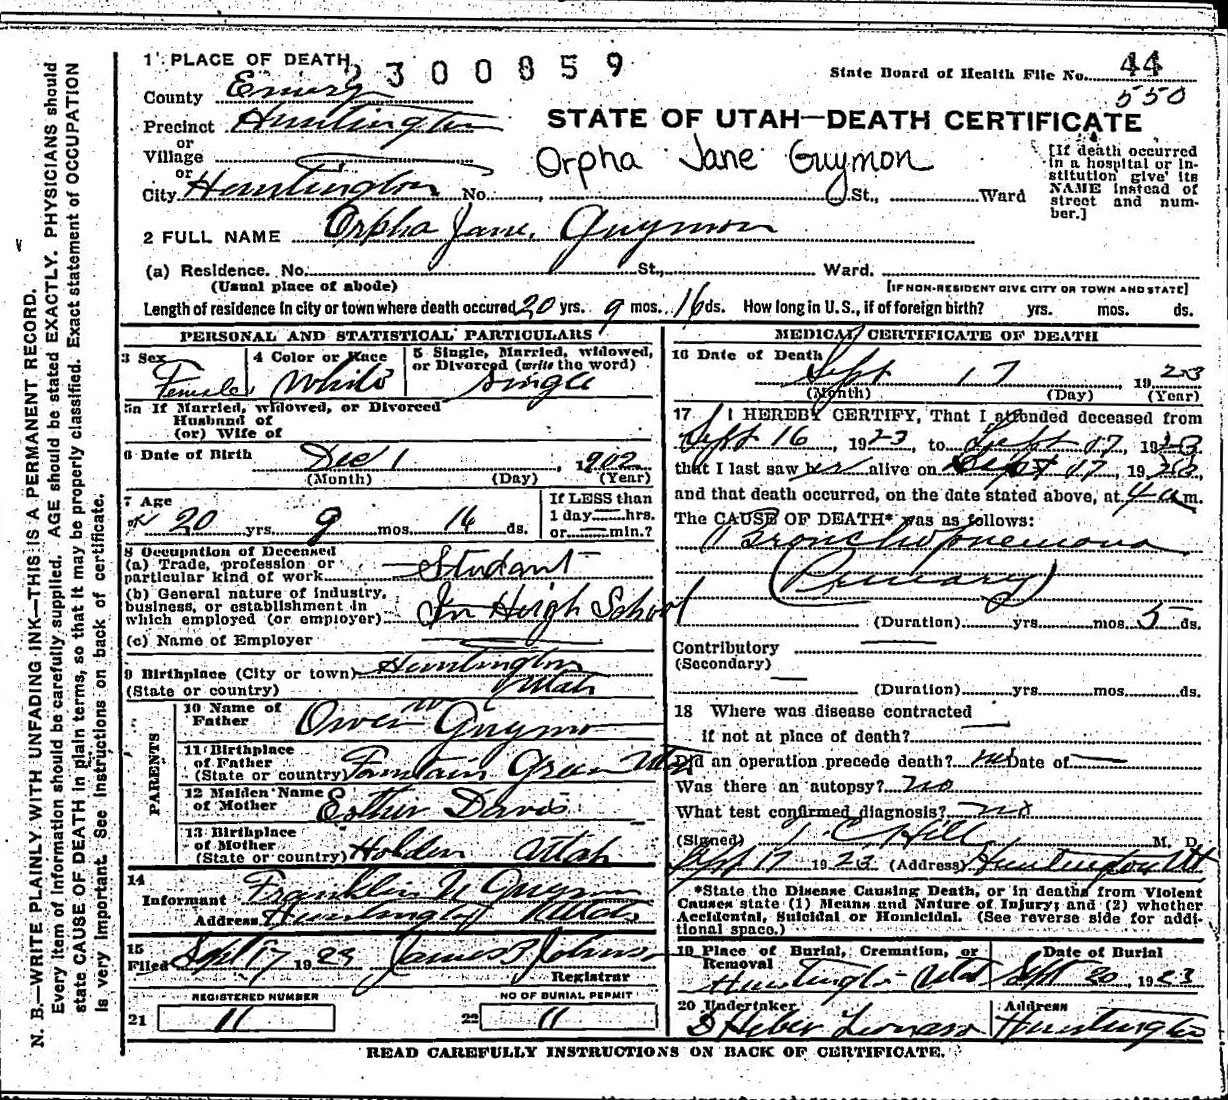 N. B.—WRITE PLAINLY WITH UNFADING INK—THIS IS A PERMANENT RECORD.
Every item of information should be carefully supplied. AGE should be stated EXACTLY. PHYSICIANS should
state CAUSE OF DEATH in plain terms, so that it may be properly classified. Exact statement of OCCUPATION
is very important. See instructions on back of certificate.
1 PLACE OF DEATH
2300859
State Board of Health File No. 44
550
County Emery
Precinct Huntington
or
Village
or
City Huntington No. St., Ward
STATE OF UTAH—DEATH CERTIFICATE
Orpha Jane Guymon
[If death occurred
in a hospital or in-
stitution give its
NAME instead of
street and num-
ber.]
2 FULL NAME Orpha Jane Guymon
(a) Residence. No. St., Ward.
(Usual place of abode)
[IF NON-RESIDENT GIVE CITY OR TOWN AND STATE]
Length of residence in city or town where death occured 20 yrs. 9 mos. 16 ds. How long in U.S., if of foreign birth? yrs. mos. ds.
PERSONAL AND STATISTICAL PARTICULARS
3 Sex
Female
4 Color or Race
White
5 Single, Married, widowed,
or Divorced (write the word)
Single
5a If Married, widowed, or Divorced
Husband of
(or) Wife of
6 Date of Birth Dec 1, 1902
(Month) (Day) (Year)
7 Age
20 yrs. 9 mos. 16 ds.
If LESS than
1 day hrs.
or min.?
8 Occupation of Deceased
(a) Trade, profession or
particular kind of work Student
(b) General nature of industry,
business, or establishment in
which employed (or employer) In High School
(c) Name of Employer
9 Birthplace (City or town) Huntington
(State or country) Utah
PARENTS
10 Name of
Father Owen W Guymon
11 Birthplace
of Father
(State or country) Fountain Green Utah
12 Maiden Name
of Mother Esther Davis
13 Birthplace
of Mother
(State or country) Holden Utah
14
Informant Franklin Guymon
Address Huntington Utah
15
Filed Sept 17 1923 James B Johnson
Registrar
REGISTERED NUMBER
21 11
NO OF BURIAL PERMIT
22 11
MEDICAL CERTIFICATE OF DEATH
16 Date of Death
Sept 17, 1923
(Month) (Day) (Year)
17 I HEREBY CERTIFY, That I attended deceased from
Sept 16, 1923, to Sept 17, 1923
that I last saw her alive on Sept 17, 1923,
and that death occurred, on the date stated above, at 4 a m.
The CAUSE OF DEATH* was as follows:
Bronchopnemona
(Primary)
(Duration) yrs. mos. 5 ds.
Contributory
(Secondary)
(Duration) yrs. mos. ds.
18 Where was disease contracted
if not at place of death?
Did an operation precede death? no Date of
Was there an autopsy? no
What test confirmed diagnosis? no
(Signed) T C Hill M. D.
Sept 17 1923 (Address) Huntington Ut
*State the Disease Causing Death, or in deaths from Violent
Causes state (1) Means and Nature of Injury; and (2) whether
Accidental, Suicidal or Homicidal. (See reverse side for addi-
tional space.)
19 Place of Burial, Cremation, or
Removal
Huntington Utah
Date of Burial
Sept 20, 1923
20 Undertaker
Heber Leonard
Address
Huntington
READ CAREFULLY INSTRUCTIONS ON BACK OF CERTIFICATE.